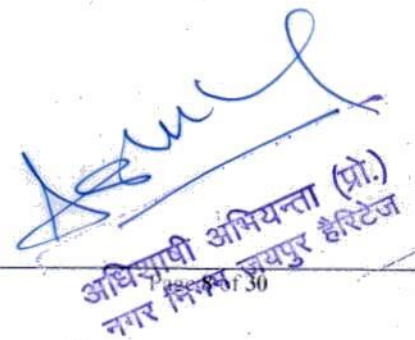 अधिशाषी अभियन्ता (प्रो.)
नगर निगम जयपुर हैरिटेज
Page 8 of 30